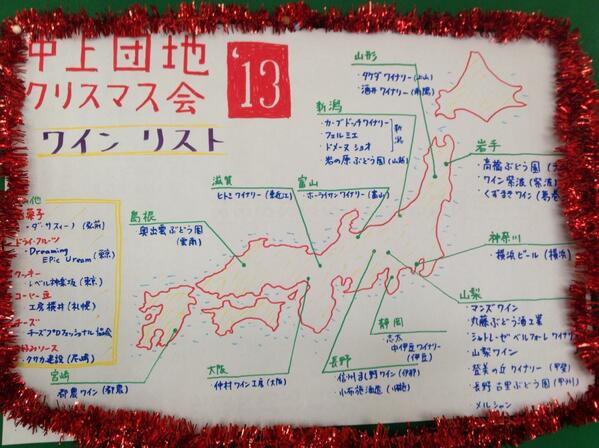 沖上団地
クリスマス会
'13
ワイン リスト
山形
・タケダワイナリー(上山)
・酒井ワイナリー(南陽)
新潟
・カーブドッチワイナリー
・フェルミエ
・ドメーヌ ショオ
新潟
・岩の原ぶどう園(上越)
岩手
・高橋ぶどう園
・ワイン紫波(紫波)
・くずまきワイン
滋賀
ヒトミワイナリー(東近江)
富山
・ホーライサンワイナリー(富山)
島根
奥出雲ぶどう園
(雲南)
神奈川
・横浜ビール(横浜)
他
菓子
・ダ・サスィーノ(弘前)
ドライ・フルーツ
・Dreaming
(東京)
クッキー
・レベル神楽坂(東京)
コーヒー豆
工房横井(札幌)
チーズ
チーズプロフェッショナル協会
リース
・クサカ建設(尼崎)
山梨
・マンズワイン
・丸藤ぶどう酒工業
・シャトレーゼベルフォーレワイナリ
・山梨ワイン
・登美の丘ワイナリー(甲斐)
・メルシャン
静岡
・志太
中伊豆ワイナリー
(伊豆)
長野
・信州まし野ワイン(伊那)
・小布施酒造
大阪
・仲村ワイン工房(大阪)
宮崎
都農ワイン(都農)